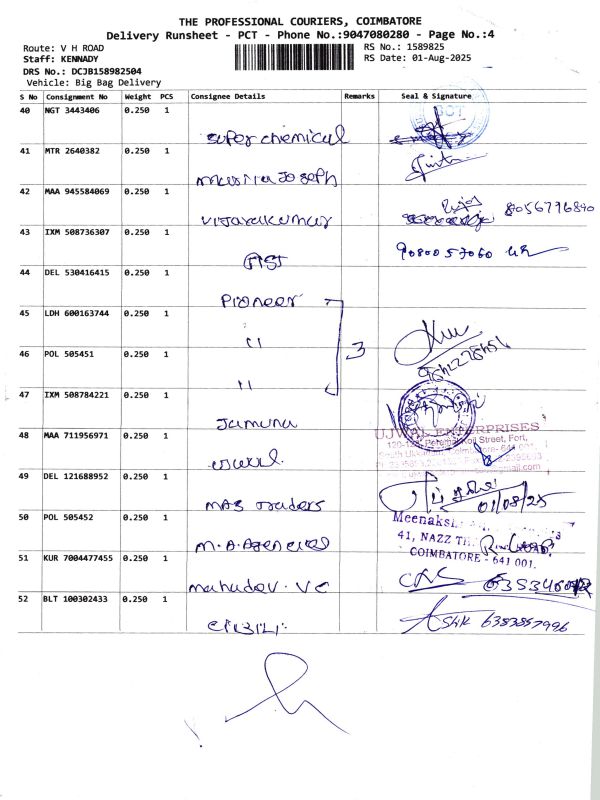 THE PROFESSIONAL COURIERS, COIMBATORE
Delivery Runsheet - PCT - Phone No.:9047080280 - Page No.:4
Route: V H ROAD
RS No.: 1589825
Staff: KENNADY
RS Date: 01-Aug-2025
DRS No.: DCJB158982504
Vehicle: Big Bag Delivery
S No Consignment No Weight PCS Consignee Details Remarks Seal & Signature
40 NGT 3443406 0.250 1
super chemical
41 MTR 2640382 0.250 1
Joseph
42 MAA 945584069 0.250 1
vijayakumar 8056796840
43 IXM 508736307 0.250 1
9080057060
44 DEL 530416415 0.250 1
Pioneer
45 LDH 600163744 0.250 1
"
3
46 POL 505451 0.250 1
"
47 IXM 508784221 0.250 1
Jamuna
UJWAL ENTERPRISES
48 MAA 711956971 0.250 1
49 DEL 121688952 0.250 1
MAS Traders 01/08/25
50 POL 505452 0.250 1
41, NAZZ
M.A. Agencies
COIMBATORE - 641 001.
51 KUR 7004477455 1 0.250 1
mahadev. VC
52 BLT 100302433 0.250 1
Ashik 6383857996